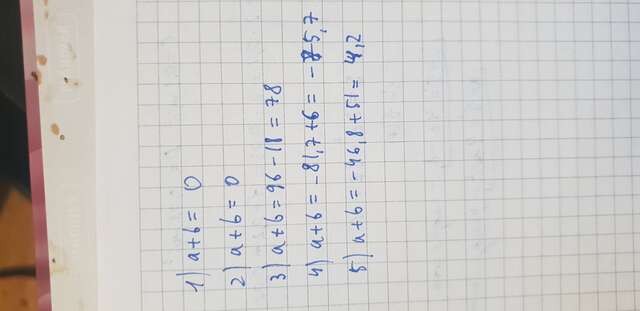 1) a+b= 0
2) a+b=0
3) a+b=96-18=78
4) a+b=-81,7+6=-75,7
5) a+b=-46,8+51=4,2